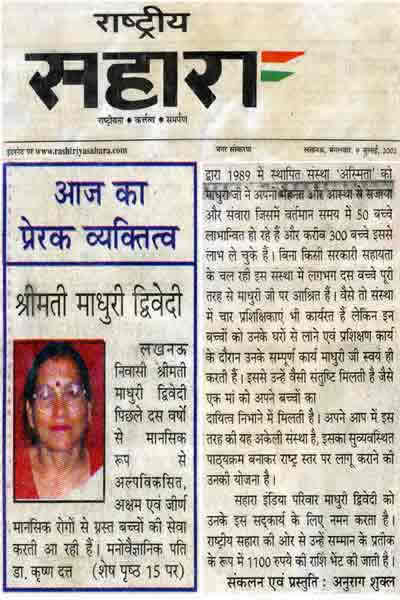 राष्ट्रीय
सहारा
राष्ट्रीयता • कर्त्तव्य • समर्पण
इंटरनेट पर www.rashtriyasahara.com
नगर संस्करण
लखनऊ, मंगलवार, 9 जुलाई, 2002
आज का
प्रेरक व्यक्तित्व
श्रीमती माधुरी द्विवेदी
लखनऊ
निवासी श्रीमती
माधुरी द्विवेदी
पिछले दस वर्षों
से मानसिक
रूप से
अल्पविकसित,
अक्षम एवं जीर्ण
मानसिक रोगों से ग्रस्त बच्चों की सेवा
करती आ रही हैं। मनोवैज्ञानिक पति
डा. कृष्ण दत्त (शेष पृष्ठ 15 पर)
द्वारा 1989 में स्थापित संस्था 'अस्मिता' को
माधुरी जी ने अपनी मेहनत और आस्था से सजाया
और संवारा जिसमें वर्तमान समय में 50 बच्चे
लाभान्वित हो रहे हैं और करीब 300 बच्चे इससे
लाभ ले चुके हैं। बिना किसी सरकारी सहायता
के चल रही इस संस्था में लगभग दस बच्चे पूरी
तरह से माधुरी जी पर आश्रित हैं। वैसे तो संस्था
में चार प्रशिक्षिकाएं भी कार्यरत हैं लेकिन इन
बच्चों को उनके घरों से लाने एवं प्रशिक्षण कार्य
के दौरान उनके सम्पूर्ण कार्य माधुरी जी स्वयं ही
करती हैं। इससे उन्हें वैसी संतुष्टि मिलती है जैसे
एक मां को अपने बच्चों का
दायित्व निभाने में मिलती है। अपने आप में इस
तरह की यह अकेली संस्था है, इसका सुव्यवस्थित
पाठ्यक्रम बनाकर राष्ट्र स्तर पर लागू कराने की
उनकी योजना है।
सहारा इंडिया परिवार माधुरी द्विवेदी को
उनके इस सद्कार्य के लिए नमन करता है।
राष्ट्रीय सहारा की ओर से उन्हें सम्मान के प्रतीक
के रूप में 1100 रुपये की राशि भेंट की जाती है।
संकलन एवं प्रस्तुति : अनुराग शुक्ल